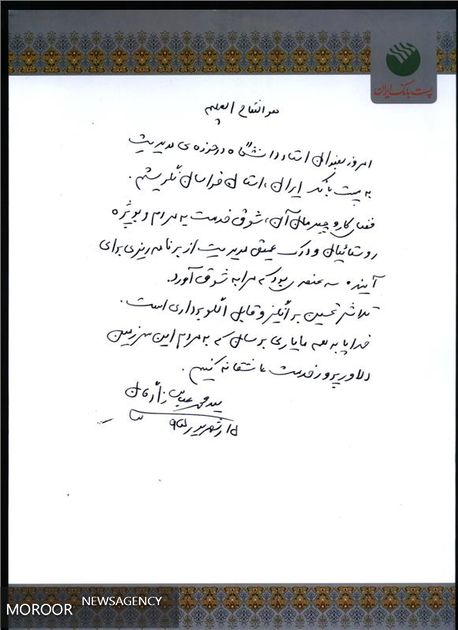 پست بانک ایران
هو الفتاح العلیم
امروز بعنوان استاد دانشگاه در حوزه ی مدیریت
به پست بانک ایران، استان خراسان نگریستم.
فضای کار و چیدمان آن، شوق خدمت به مردم و بویژه
روستائیان و درک عمیق مدیریت از برنامه ریزی برای
آینده سه عنصری بود که مرا به شوق آورد.
تلاشتان تحسین برانگیز و قابل الگوبرداری است.
خدایا به همه ما یاری برسان که به مردم این سرزمین
دلاورپرور خدمت عاشقانه کنیم.
سید محمد عباس زادگان
شهریور
MOROOR NEWSAGENCY